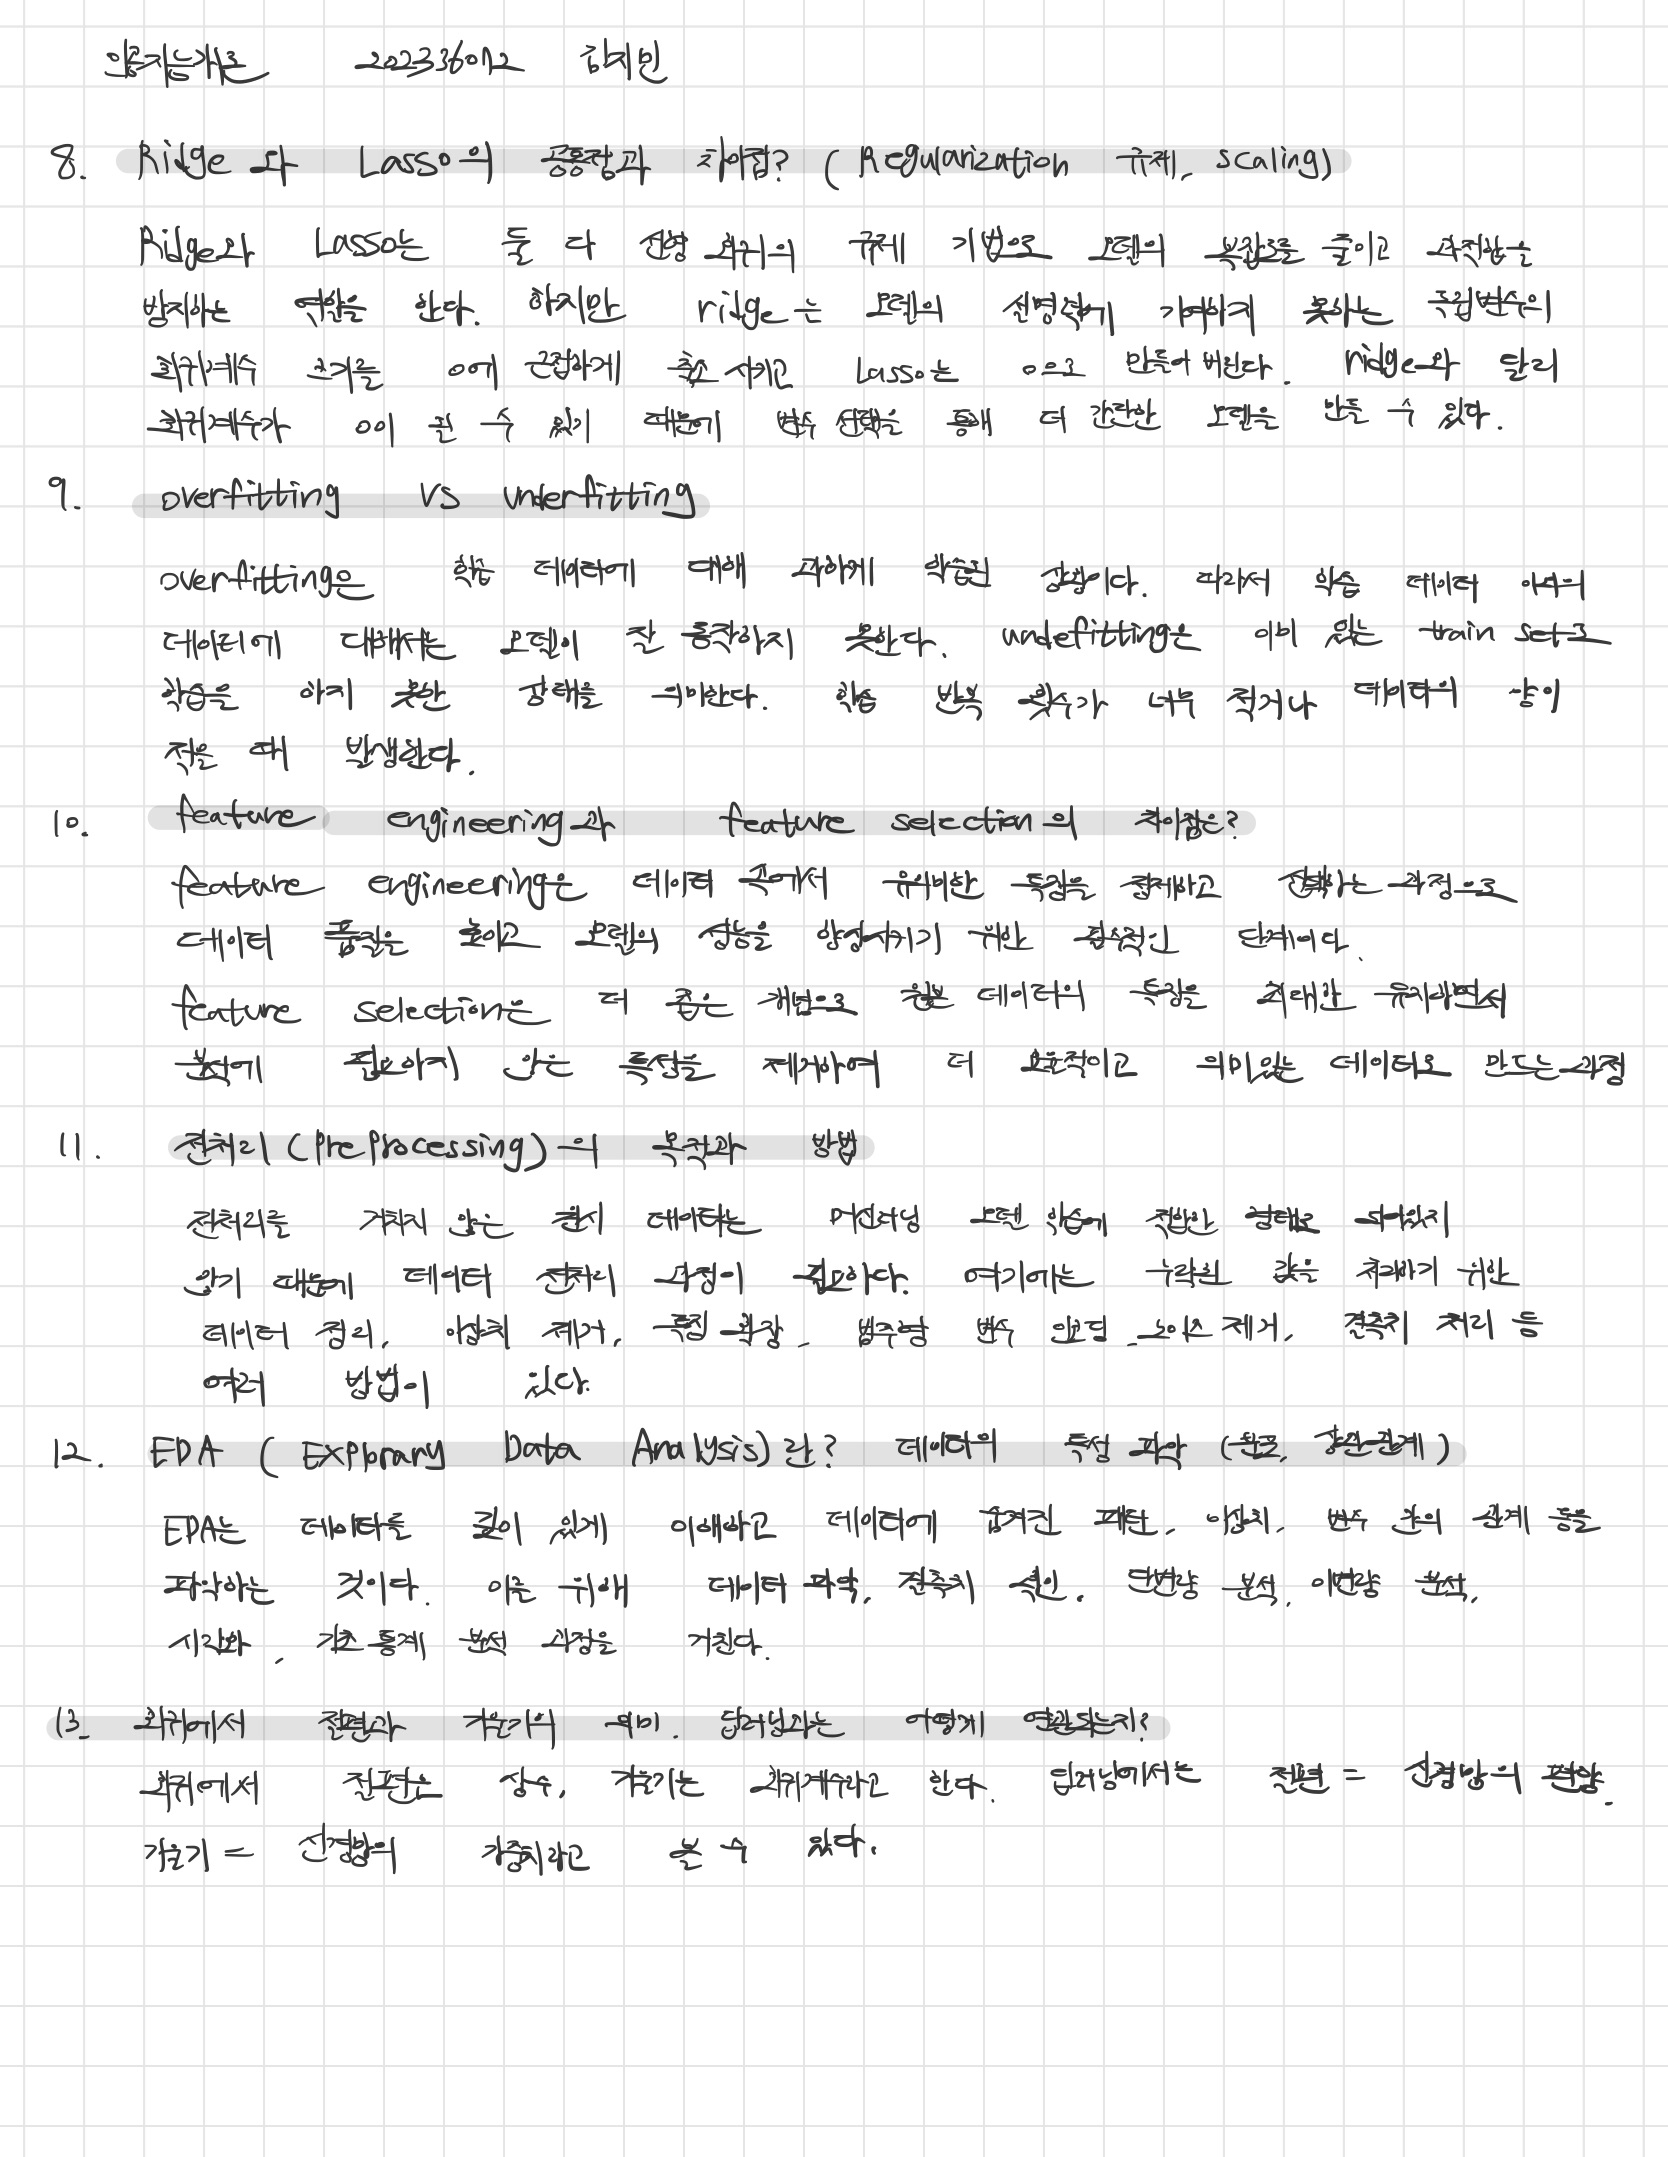 202336072 김지민
8. Ridge 와 Lasso의 공통점과 차이점? (Regularization 규제, scaling)
Ridge와 Lasso는 둘 다 선형 회귀의 규제 기법으로 모델의 복잡도를 줄이고 과적합을
방지하는 역할을 한다. 하지만 ridge는 모델의 설명력에 기여하지 못하는 독립변수의
회귀계수 크기를 0에 근접하게 축소 시키고 Lasso는 0으로 만들어 버린다. ridge와 달리
회귀계수가 0이 될 수 있기 때문에 변수 선택을 통해 더 간단한 모델을 만들 수 있다.
9. overfitting VS underfitting
overfitting은 학습 데이터에 대해 과하게 학습된 상황이다. 따라서 학습 데이터 이외의
데이터에 대해서는 모델이 잘 동작하지 못한다. undefitting은 이미 있는 train set로
학습을 하지 못한 상태를 의미한다. 학습 반복 횟수가 너무 적거나 데이터의 양이
적을 때 발생한다.
10. feature engineering과 feature selection의 차이점은?
feature engineering은 데이터 속에서 유의미한 특징을 정제하고 선택하는 과정으로
데이터 품질을 높이고 모델의 성능을 향상시키기 위한 필수적인 단계이다.
feature selection은 더 좁은 개념으로 원본 데이터의 특징을 최대한 유지하면서
분석에 필요하지 않은 특성을 제거하여 더 효율적이고 의미있는 데이터로 만드는 과정
11. 전처리(PreProcessing)의 목적과 방법
전처리를 거치지 않은 원시 데이터는 머신러닝 모델 학습에 적합한 형태로 되어있지
않기 때문에 데이터 전처리 과정이 필요하다. 여기에는 누락된 값을 처리하기 위한
데이터 정리, 이상치 제거, 특징 확장, 범주형 변수 인코딩, 노이즈 제거, 결측치 처리 등
여러 방법이 있다.
12. EDA (Explorary Data Analysis)란? 데이터의 특성 파악 (분포, 상관관계)
EDA는 데이터를 깊이 있게 이해하고 데이터에 숨겨진 패턴, 이상치, 변수 간의 관계 등을
파악하는 것이다. 이를 위해 데이터 파악, 결측치 확인, 단변량 분석, 이변량 분석,
시각화, 기초 통계 분석 과정을 거친다.
13. 회귀에서 절편과 기울기의 의미. 딥러닝과는 어떻게 연관되는지?
회귀에서 절편은 상수, 기울기는 회귀계수라고 한다. 딥러닝에서는 절편 = 신경망의 편향,
기울기 = 신경망의 가중치라고 볼 수 있다.